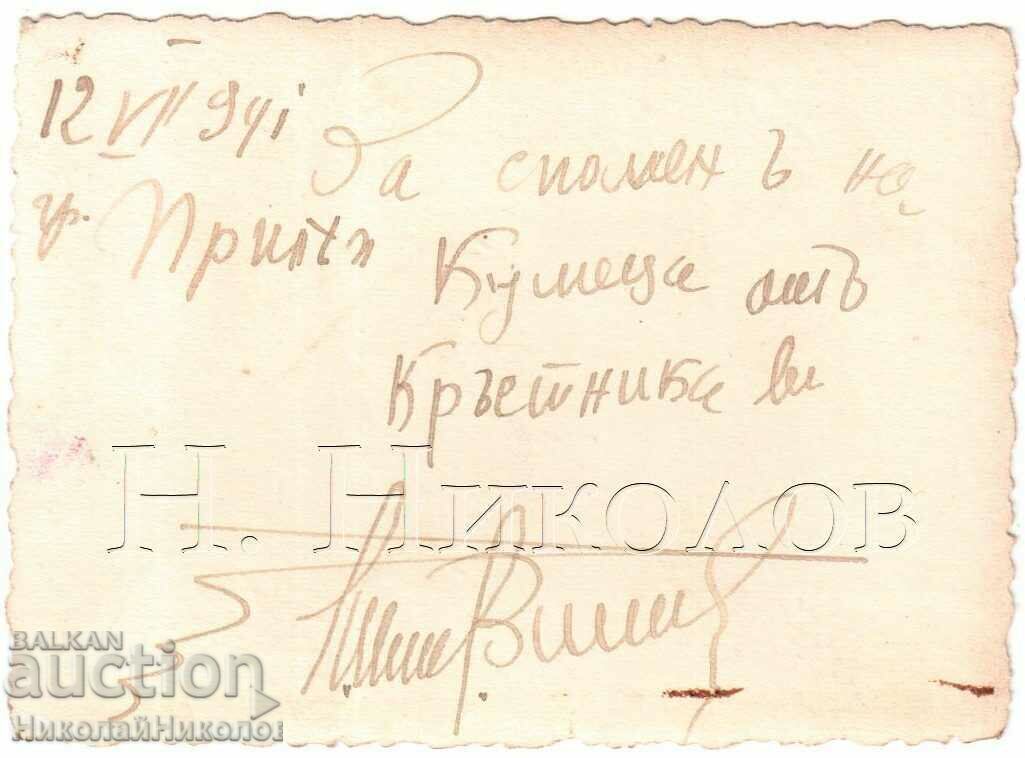 12 VII 941
гр. Прилеп
За споменъ на
Кумеца отъ
Кръстника ви
Н. Николов
BALKAN
auction
НиколайНиколов